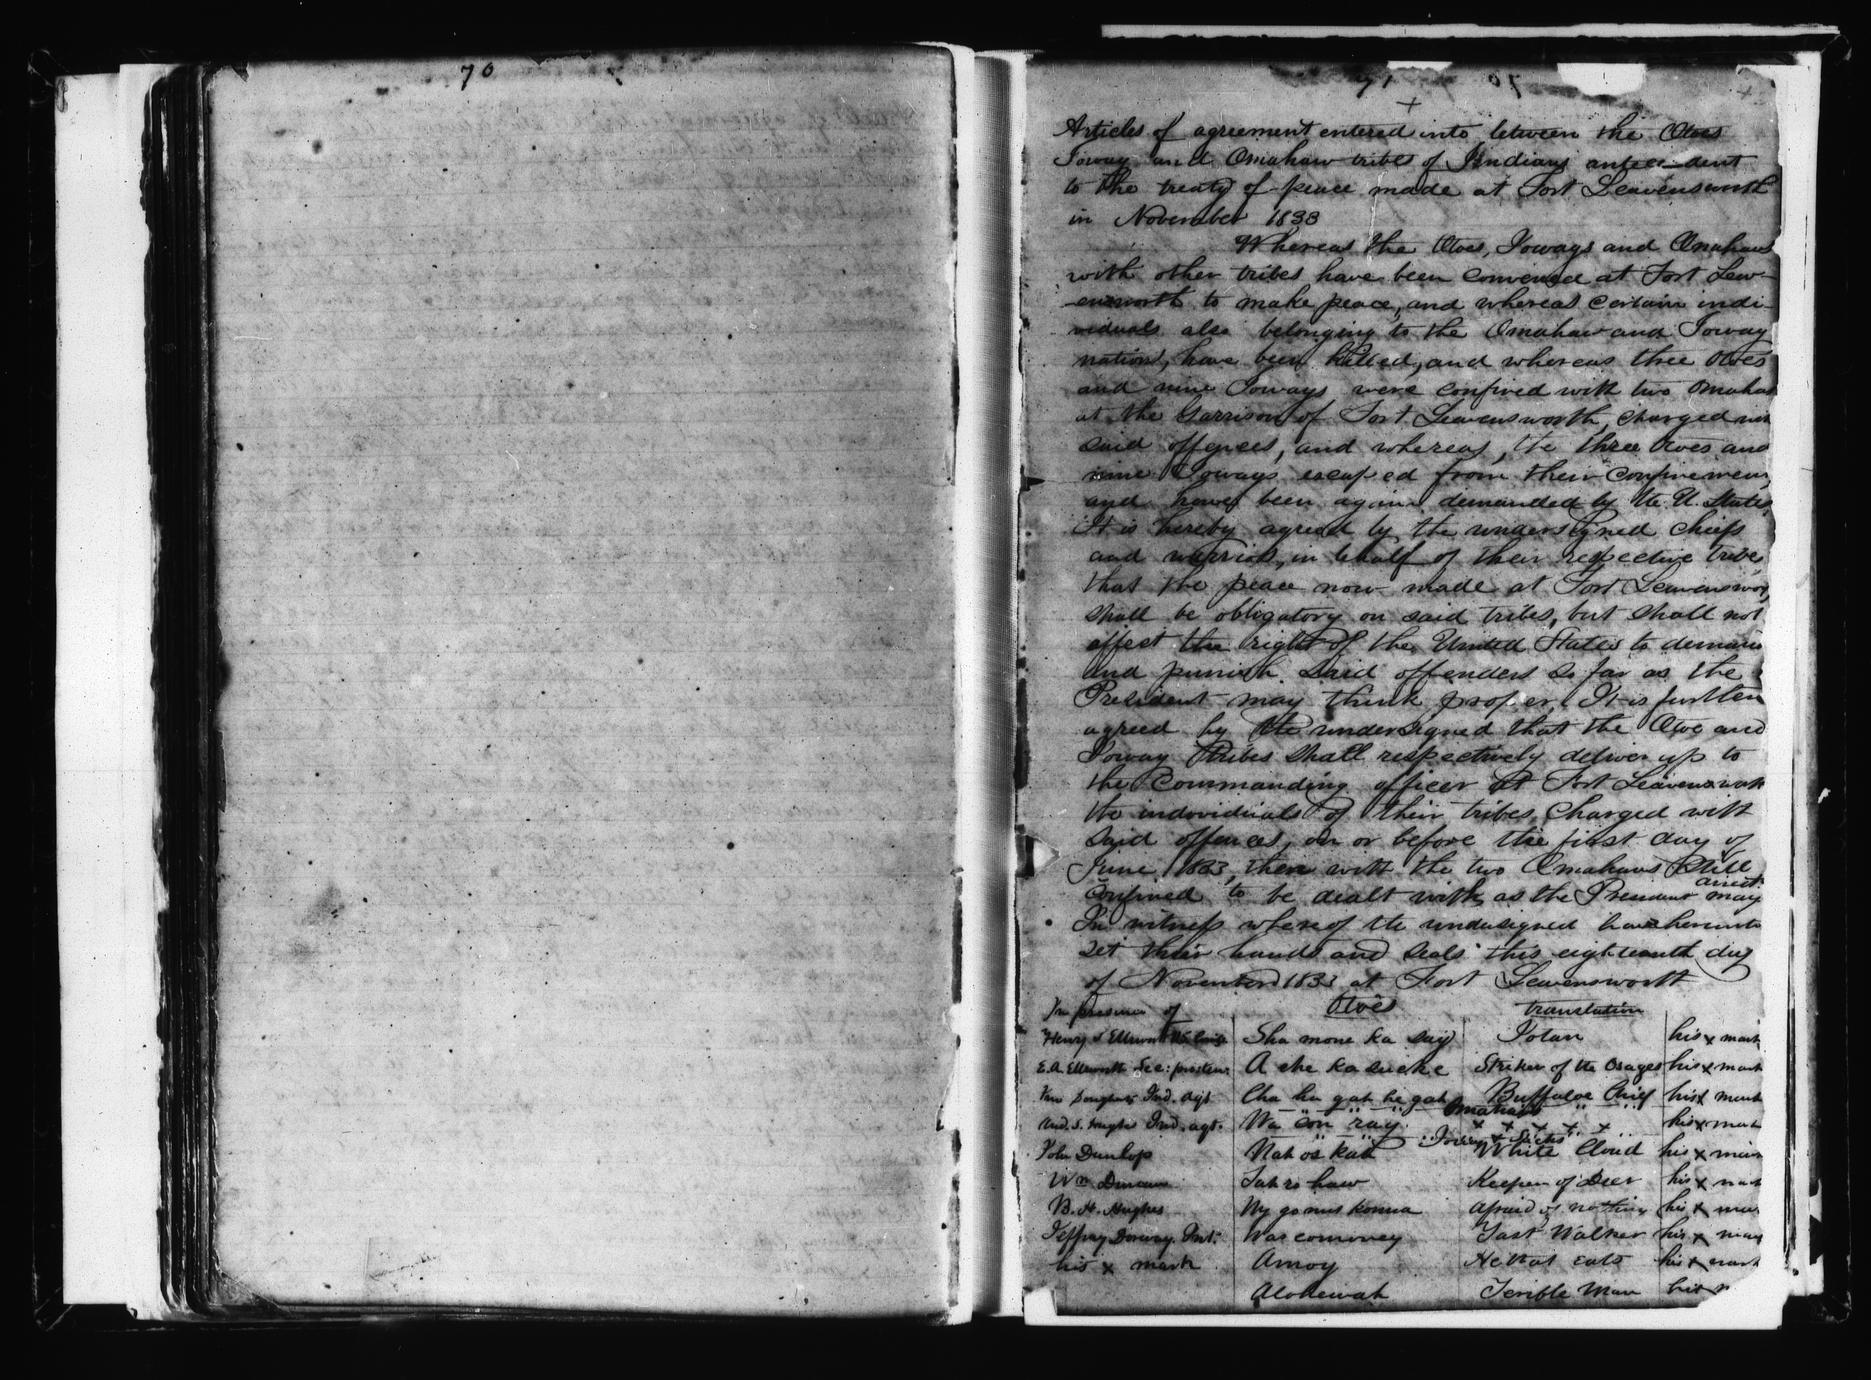 70
71
Articles of agreement entered into between the Otoes
Ioway and Omahaw tribes of Indians antecedent
to the treaty of peace made at Fort Leavensworth
in November 1833
Whereas the Otoes, Ioways and Omahaws
with other tribes have been convened at Fort Leav-
ensworth to make peace, and whereas certain indi-
viduals also belonging to the Omahaw and Ioway
nations, have been killed, and whereas three Otoes
and nine Ioways were confined with two Omahas
at the Garrison of Fort Leavensworth, charged with
said offences, and whereas, the three Otoes and
nine Ioways escaped from their confinement
and have been again demanded by the U. States,
It is hereby agreed by the undersigned chiefs
and warriors, in behalf of their respective tribes
that the peace now made at Fort Leavenswor
shall be obligatory on said tribes, but shall not
affect the right of the United States to demand
and punish said offenders so far as the
President may think proper, It is further
agreed by the undersigned that the Otoe and
Ioway Tribes shall respectively deliver up to
the Commanding officer at Fort Leavensworth
the individuals of their tribes charged with
said offences, on or before the first day of
June 1833, then with the two Omahaws Still
confined to be dealt with as the President may
direct.
In witness whereof the undersigned have hereunto
set their hands and seals this eighteenth day
of November 1833 at Fort Leavensworth
In presence of Otoes translation
Henry L Ellsworth US Sha mone ka say Iotan his x mark
E. A. Ellsworth Sec: protem A che ka suche Striker of the Osages his x mark
Doughty Ind. Agt Cha ha gah he gah Buffaloe Chief his x mark
Omahaws
And. S. Hughs Ind. agt. Wa con ray x x x x x his x mark
Ioway
John Dunlop Nah os kah White Cloud his x mark
Wm Duncan Tah ro haw Keeper of Deer his x mark
B. H. Hughes Ny go nus konna Afraid of nothing his x mark
Jeffrey Int. Was comoney Fast Walker his x mark
his x mark Amoy He that eats his x mark
Alohewah Terible Man his